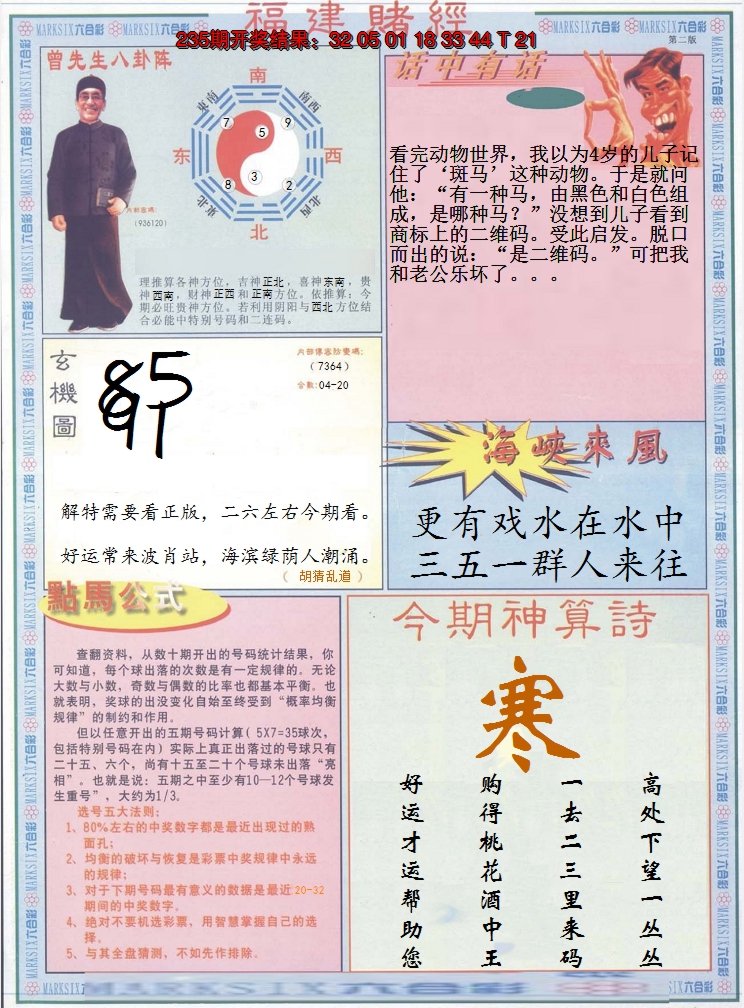 福建賭經
235期开奖结果：32 05 01 18 33 44 T 21
第二版
MARKSIX六合彩
曾先生八卦阵
南
東南
南西
东
西
東北
北西
北
7
5
9
8
3
2
内部密碼:
(936120)
理推算各神方位，吉神正北，喜神东南，贵
神西南，财神正西和正南方位。依推算：今
期必旺贵神方位。若利用阴阳与西北方位结
合必能中特别号码和二连码。
话中有话
看完动物世界，我以为4岁的儿子记
住了‘斑马’这种动物。于是就问
他：“有一种马，由黑色和白色组
成，是哪种马？”没想到儿子看到
商标上的二维码。受此启发。脱口
而出的说：“是二维码。”可把我
和老公乐坏了。。。
玄機圖
85
91
(7364)
合数:04-20
解特需要看正版，二六左右今期看。
好运常来波肖站，海滨绿荫人潮涌。
（ 胡猜乱道 ）
海峽來風
更有戏水在水中
三五一群人来往
點馬公式
查翻资料，从数十期开出的号码统计结果，你
可知道，每个球出落的次数是有一定规律的。无论
大数与小数，奇数与偶数的比率也都基本平衡。也
就表明，奖球的出没变化自始至终受到“概率均衡
规律”的制约和作用。
但以任意开出的五期号码计算( 5X7=35球次，
包括特别号码在内）实际上真正出落过的号球只有
二十五、六个，尚有十五至二十个号球未出落“亮
相”。也就是说：五期之中至少有10—12个号球发
生重号”，大约为1/3。
选号五大法则：
1、80%左右的中奖数字都是最近出现过的熟
面孔；
2、均衡的破坏与恢复是彩票中奖规律中永远
的规律；
3、对于下期号码最有意义的数据是最近20-32
期间的中奖数字。
4、绝对不要机选彩票，用智慧掌握自己的选
择。
5、与其全盘猜测，不如先作排除。
今期神算詩
寒
高处下望一丛丛
一去二三里来码
购得桃花酒中王
好运才运帮助您